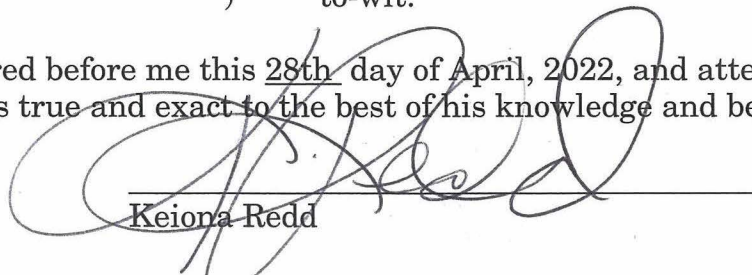 ) to-wit:
red before me this 28th day of April, 2022, and atte
s true and exact to the best of his knowledge and be
K. Redd
Keiona Redd